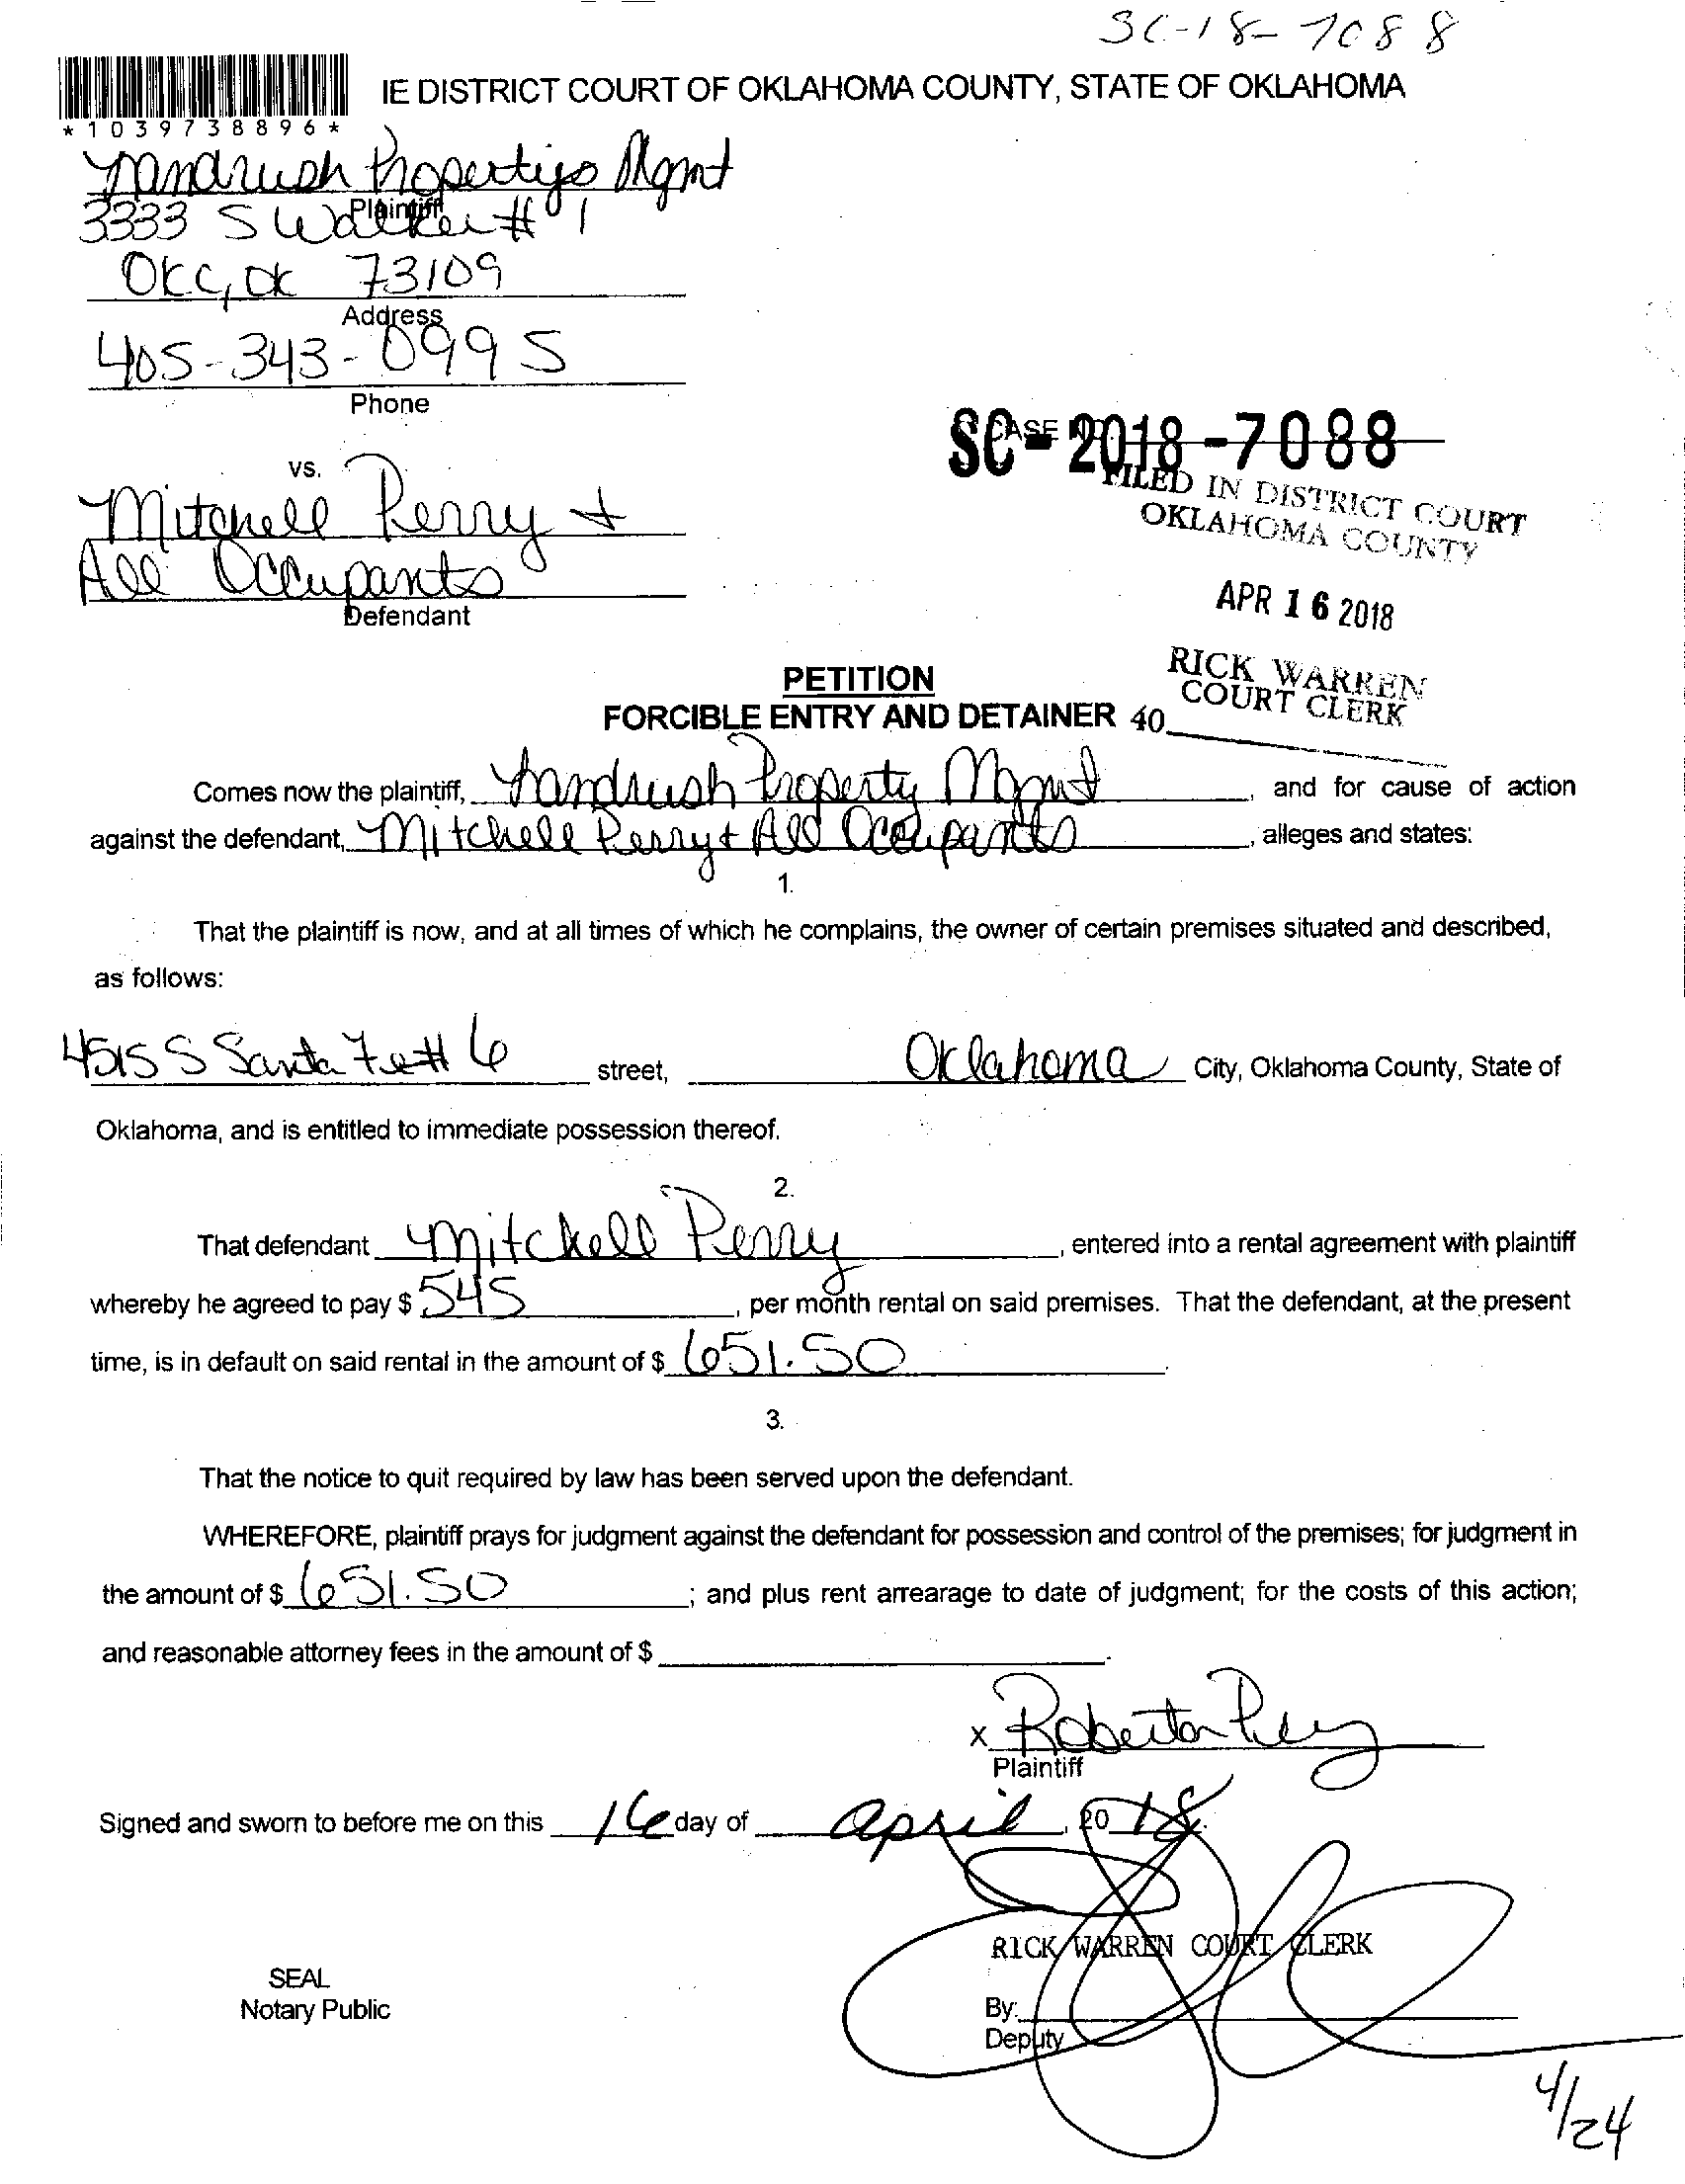 SC-18-7088
IE DISTRICT COURT OF OKLAHOMA COUNTY, STATE OF OKLAHOMA
*1039738896*
Landrush Properties Mgmt
Plaintiff
3333 S Walker # 1
OKC, OK 73109
Address
405-343-0995
Phone
SC-2018-7088
CASE
FILED IN DISTRICT COURT
OKLAHOMA COUNTY
vs.
Mitchell Perry +
All Occupants
Defendant
APR 16 2018
RICK WARREN
COURT CLERK
40
PETITION
FORCIBLE ENTRY AND DETAINER
Comes now the plaintiff, Landrush Property Mgmt, and for cause of action
against the defendant, Mitchell Perry + All Occupants, alleges and states:
1.
That the plaintiff is now, and at all times of which he complains, the owner of certain premises situated and described,
as follows:
4515 S Santa Fe # 6 street, Oklahoma City, Oklahoma County, State of
Oklahoma, and is entitled to immediate possession thereof.
2.
That defendant Mitchell Perry, entered into a rental agreement with plaintiff
whereby he agreed to pay $ 545, per month rental on said premises. That the defendant, at the present
time, is in default on said rental in the amount of $ 651.50.
3.
That the notice to quit required by law has been served upon the defendant.
WHEREFORE, plaintiff prays for judgment against the defendant for possession and control of the premises; for judgment in
the amount of $ 651.50; and plus rent arrearage to date of judgment; for the costs of this action;
and reasonable attorney fees in the amount of $ .
x Roberta
Plaintiff
Signed and sworn to before me on this 16 day of april, 20 18.
RICK WARREN COURT CLERK
SEAL
Notary Public
By:
Deputy
4/24